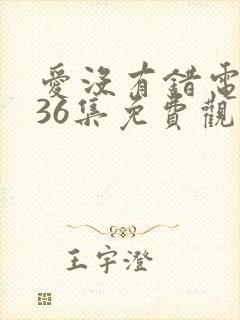 愛沒有錯電
36集免費觀
王宇澄